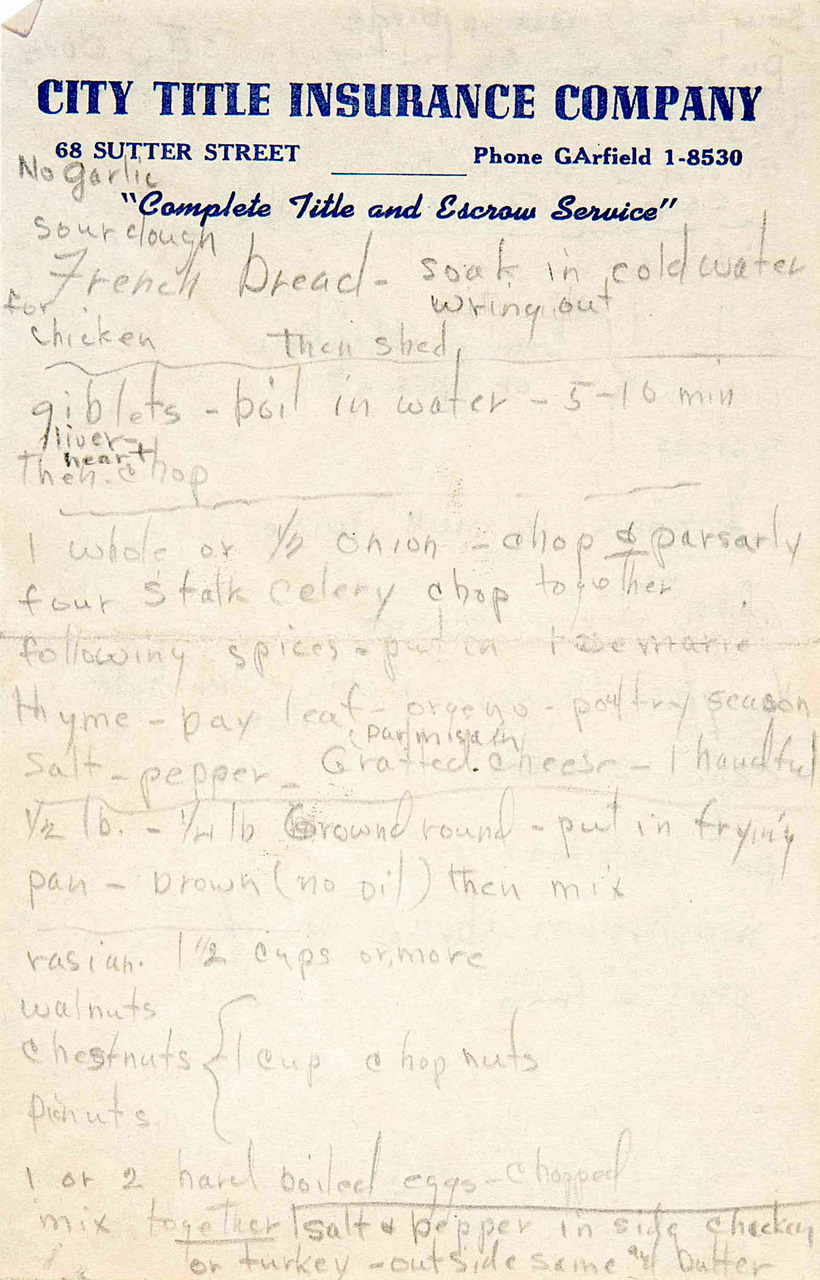 CITY TITLE INSURANCE COMPANY
68 SUTTER STREET
Phone GArfield 1-8530
No Garlic
"Complete Title and Escrow Service"
sour dough
French Bread - soak in cold water
wring out
for
chicken then shed
giblets - boil in water - 5-10 min
liver -
heart
then chop
1 whole or 1/2 onion - chop & parsarly
four stalk celery chop together
following spices - put in rosemarie
thyme - bay leaf - orgeno - poultry season
(parmisain)
salt - pepper - Gratted cheese - 1 handful
1/2 lb. - 1/4 lb Ground round - put in frying
pan - brown (no oil) then mix
rasian. 1 1/2 cups or more
walnuts
chestnuts { 1 cup chop nuts
pinuts
1 or 2 hard boiled eggs - chopped
mix together salt & pepper in side chicken
or turkey - outside same and butter